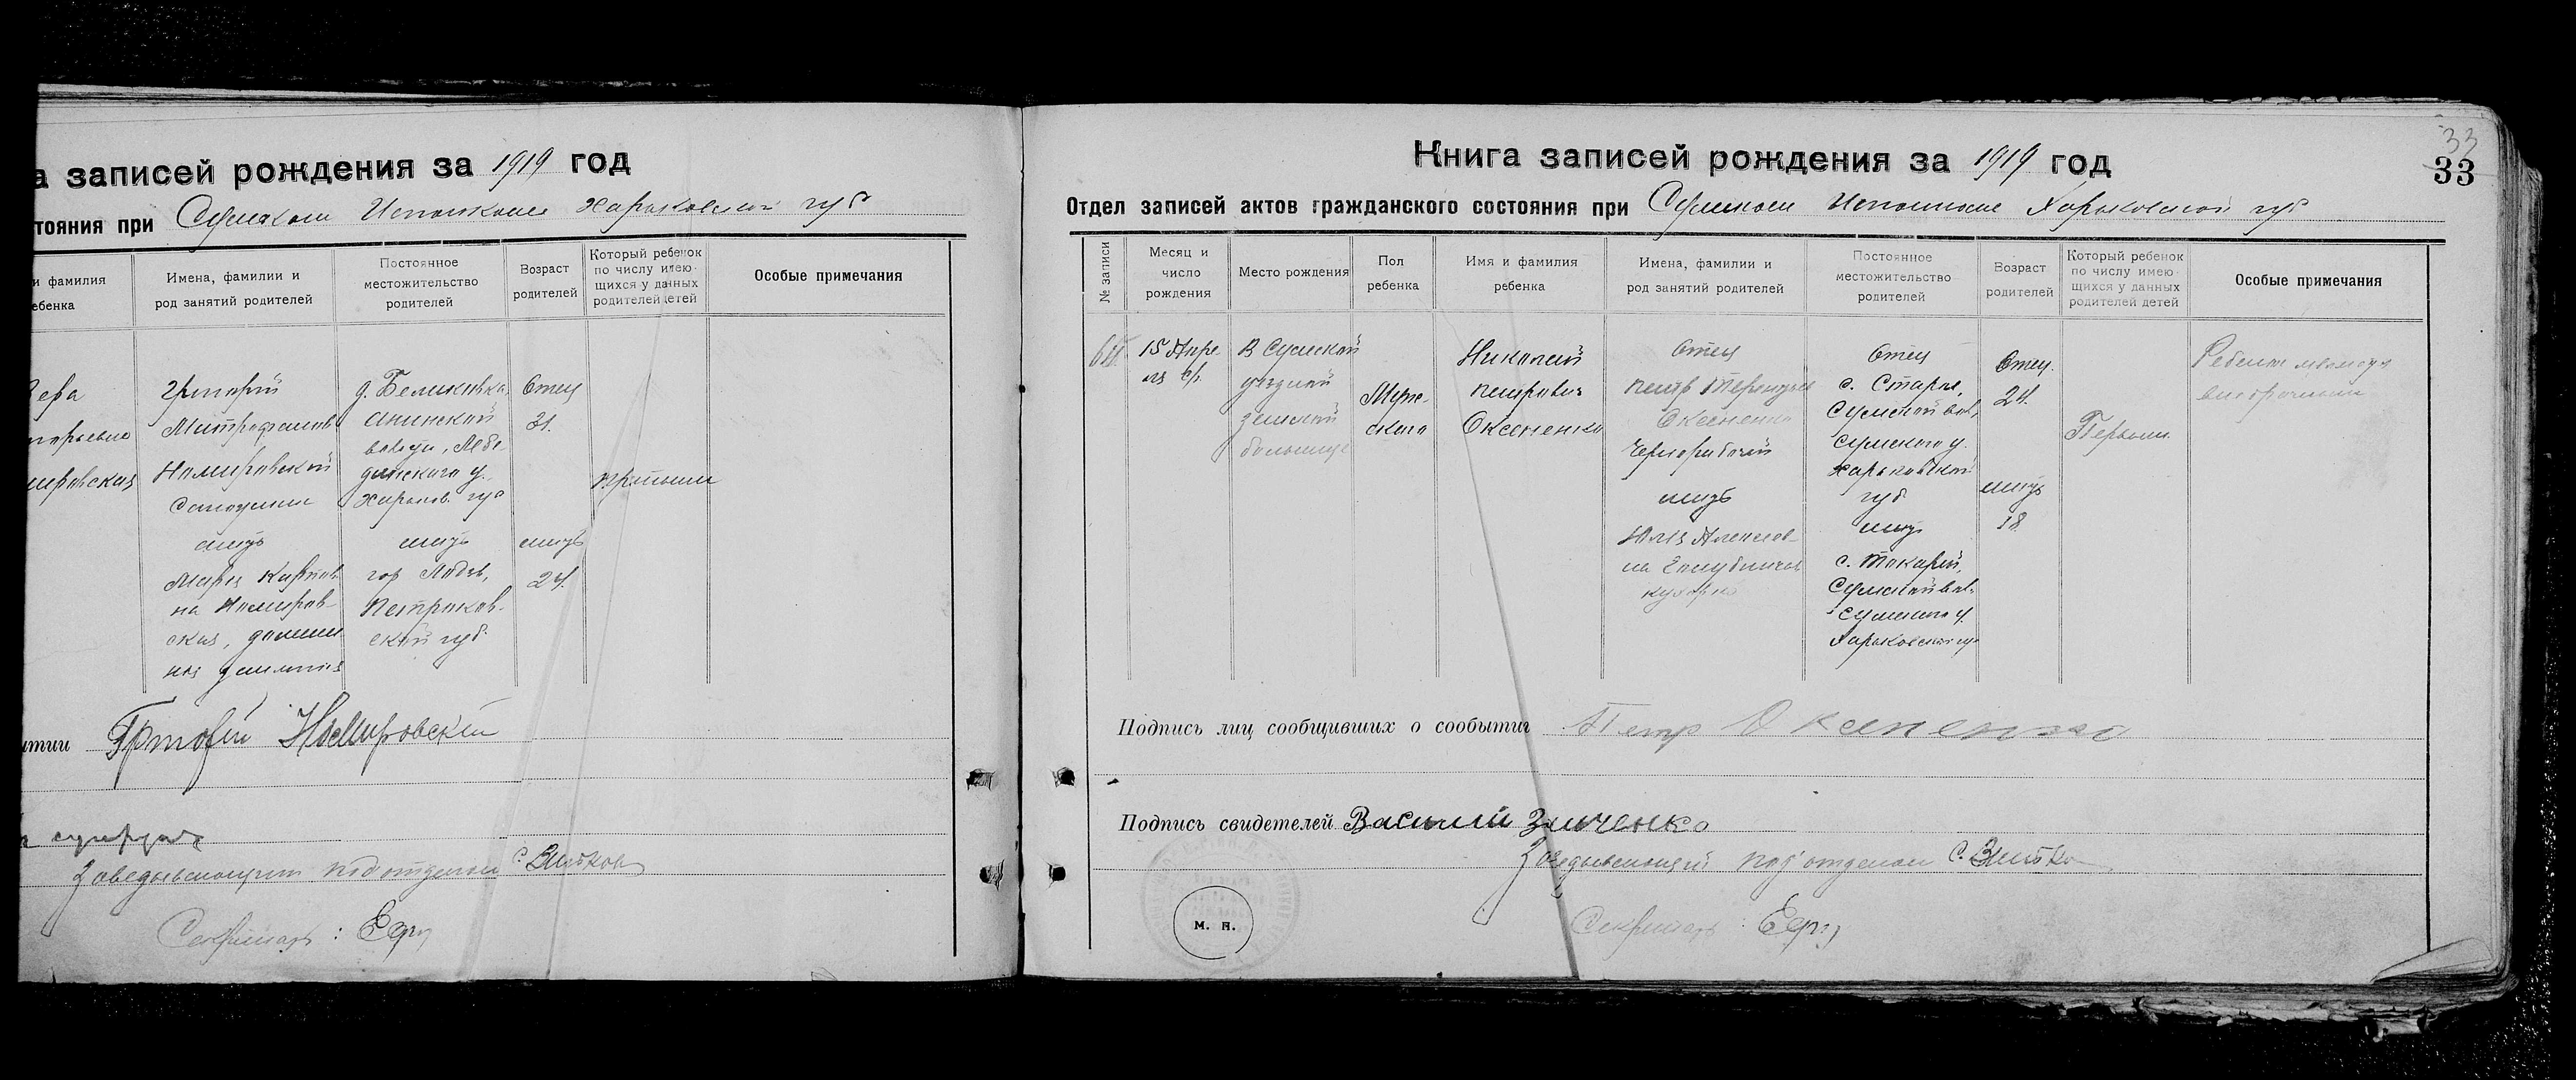 а записей рождения за 1919 год
тояния при Сумском Исполкоме Харьковской губ
и фамилия
ебенка
Имена, фамилии и
род занятий родителей
Постоянное
местожительство
родителей
Возраст
родителей
Который ребенок
по числу имею-
щихся у данных
родителей детей
Особые примечания
Вера
Григорий
Митрофанов
Немировский
мать
Мария Карпов-
на Немиров-
ская, домаш
д. Беликовка,
волости, Лебе-
динского у.,
Харьков. губ
мать
гор Лодзь,
Петроков-
ской губ.
Отец
31.
мать
24.
третьим
тии Григорий Немировский
Заведывающий подотделом
Секретарь:
33
33
Книга записей рождения за 1919 год
Отдел записей актов гражданского состояния при Сумском Исполкоме Харьковской губ
№ записи
Месяц и
число
рождения
Место рождения
Пол
ребенка
Имя и фамилия
ребенка
Имена, фамилии и
род занятий родителей
Постоянное
местожительство
родителей
Возраст
родителей
Который ребенок
по числу имею-
щихся у данных
родителей детей
Особые примечания
15 Апре
ля с/г.
В Сумской
уездной
земской
больнице
Муж-
ского
Николай
Петрович
Оксененко
Отец
Петр Терентьев
Оксененко
Чернорабочий
мать
Юлия Алексеев-
на Голубничая
кухарка
Отец
с. Старое,
Сумской вол,
Сумского у.
Харьковской
губ
мать
с. Токарей,
Сумской вол.
Сумского у.
Харьковской гу
Отец.
24.
мать
18
Первым
Ребенок
Подпись лиц сообщивших о сообытии Петр Оксененко
Подпись свидетелей Василий Зинченко
Заведывающий подотделом
м. п.
Секретарь: